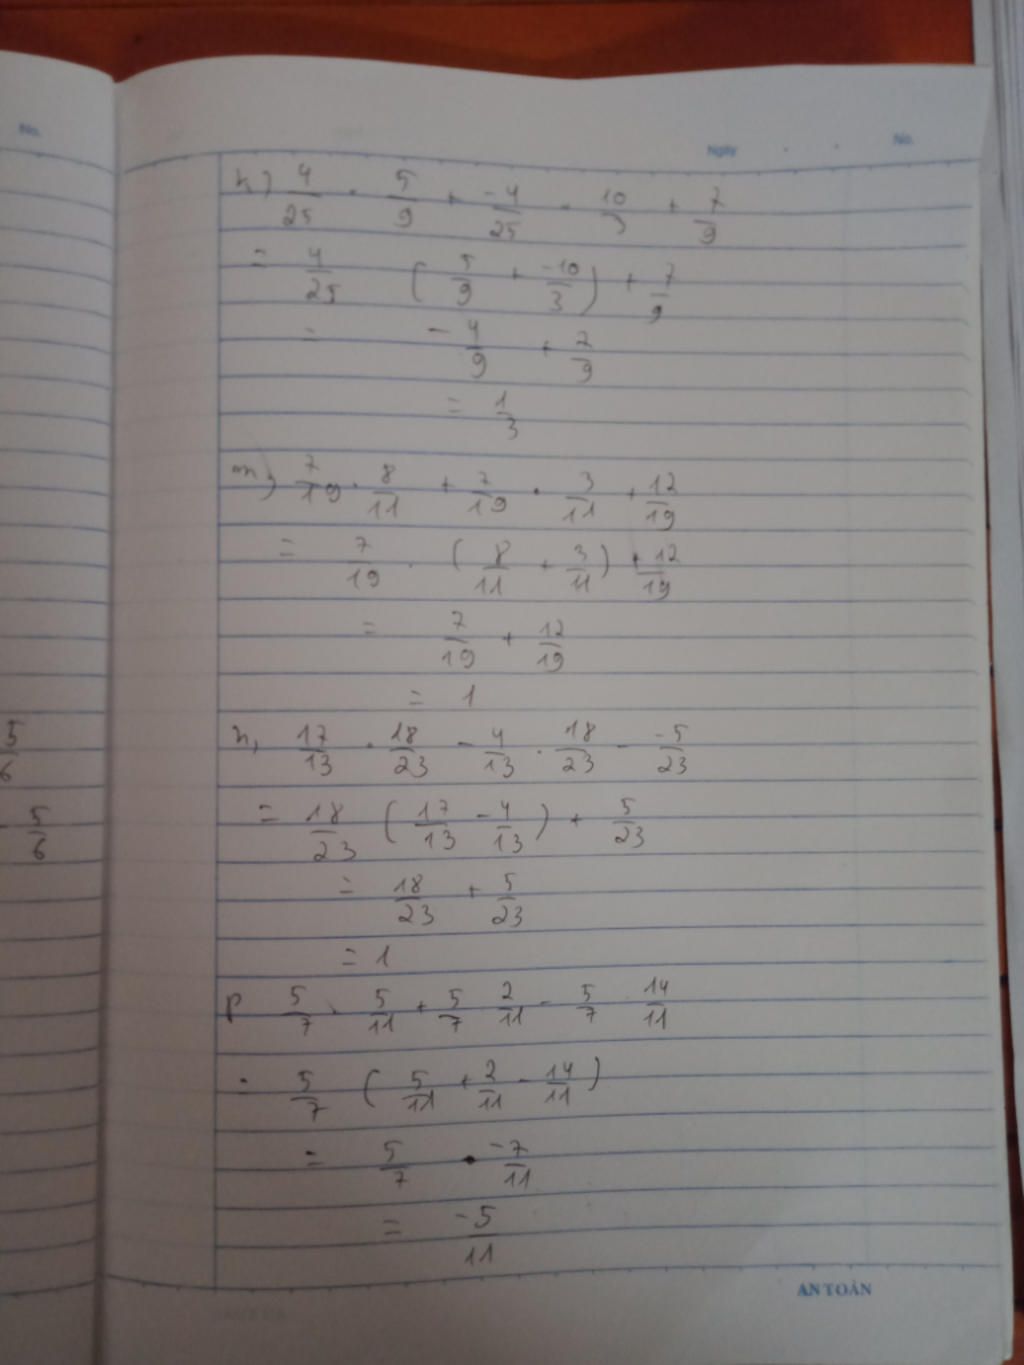 No.
Ngày No.
h) 4/25 . 5/9 + -4/25 . 10/3 + 7/9
= 4/25 (5/9 + -10/3) + 7/9
= -4/9 + 7/9
= 1/3
m) 7/19 . 8/11 + 7/19 . 3/11 + 12/19
= 7/19 . (8/11 + 3/11) + 12/19
= 7/19 + 12/19
= 1
n, 17/13 . 18/23 - 4/13 . 18/23 - -5/23
= 18/23 (17/13 - 4/13) + 5/23
= 18/23 + 5/23
= 1
p 5/7 . 5/11 + 5/7 2/11 - 5/7 14/11
= 5/7 (5/11 + 2/11 - 14/11)
= 5/7 . -7/11
= -5/11
5/6
- 5/6
AN TOÀN